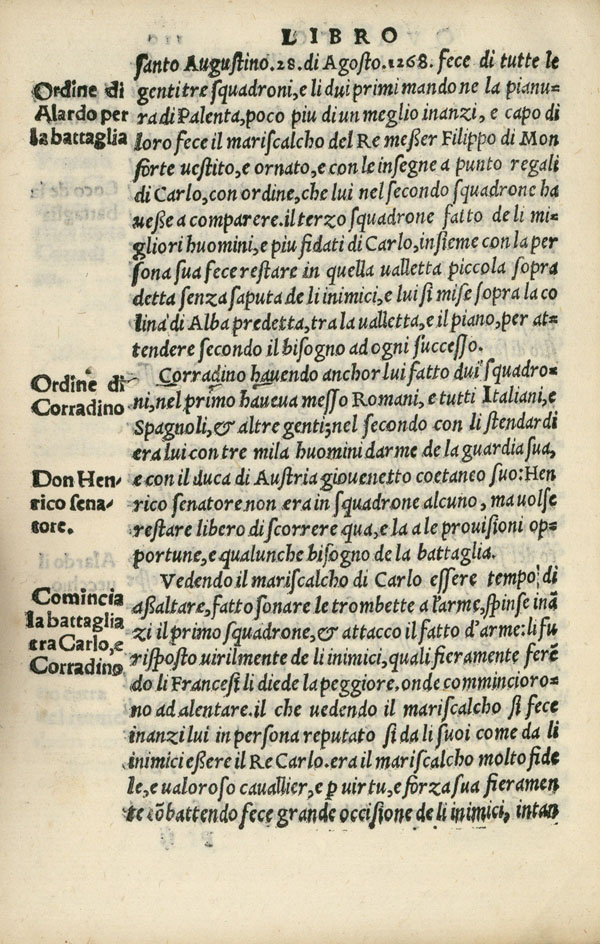 LIBRO
santo Augustino.28.di Agosto.1268. fece di tutte le
Ordine di
Alardo per
la battaglia
genti tre squadroni, e li dui primi mando ne la pianu-
ra di Palenta, poco piu di un meglio inanzi, e capo di
loro fece il mariscalcho del Re messer Filippo di Mon
forte uestito, e ornato, e con le insegne a punto regali
di Carlo, con ordine, che lui nel secondo squadrone ha
uesse a comparere. il terzo squadrone fatto de li mi-
gliori huomini, e piu fidati di Carlo, insieme con la per
sona sua fece restare in quella ualletta piccola sopra
detta senza saputa de li inimici, e lui si mise sopra la co
lina di Alba predetta, tra la ualletta, e il piano, per at-
tendere secondo il bisogno ad ogni successo.
Ordine di
Corradino
Corradino hauendo anchor lui fatto dui squadro-
ni, nel primo haueua messo Romani, e tutti Italiani, e
Spagnoli, & altre genti; nel secondo con li stendardi
era lui con tre mila huomini darme de la guardia sua,
Don Hen-
rico sena-
tore.
e con il duca di Austria giouenetto coetaneo suo: Hen
rico senatore non era in squadrone alcuno, ma uolse
restare libero di scorrere qua, e la a le prouisioni op-
portune, e qualunche bisogno de la battaglia.
Comincia
la battaglia
tra Carlo, e
Corradino
Vedendo il mariscalcho di Carlo essere tempo di
assaltare, fatto sonare le trombette a l'arme, spinse inā
zi il primo squadrone, & attacco il fatto d'arme: li fu
risposto uirilmente de li inimici, quali fieramente ferē
do li Francesi li diede la peggiore. onde commincioro-
no ad alentare. il che uedendo il mariscalcho si fece
inanzi lui in persona reputato si da li suoi come da li
inimici essere il Re Carlo. era il mariscalcho molto fide
le, e ualoroso cauallier, e ꝑ uirtu, e forza sua fieramen
te cōbattendo fece grande occisione de li inimici, intan